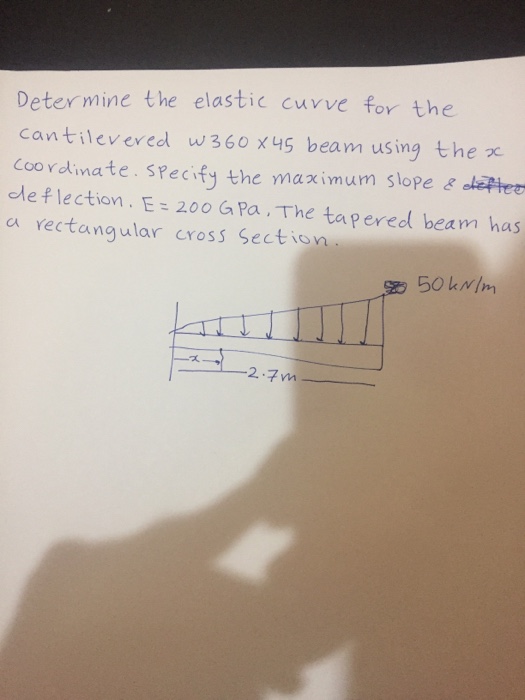 Determine the elastic curve for the
cantilevered W360 x 45 beam using the x
coordinate. Specify the maximum slope &
deflection. E = 200 GPa. The tapered beam has
a rectangular cross section.
50 kN/m
x
2.7m